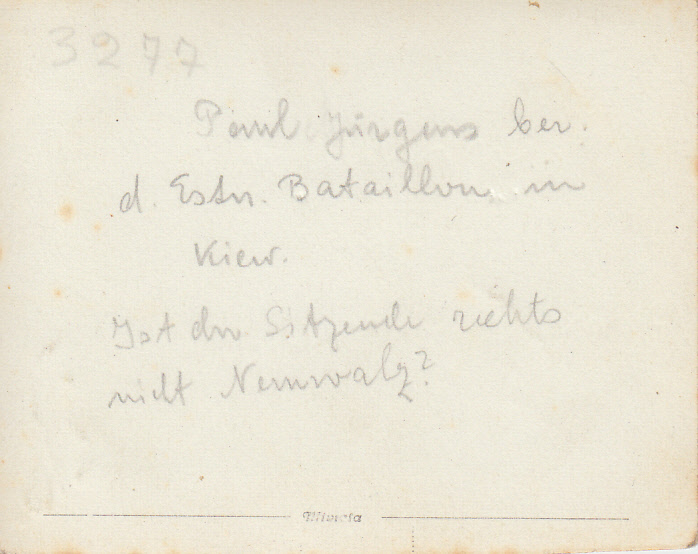 3277
Paul Jürgens bei
d. Estn. Bataillon in
Kiew.
Ist der Sitzende rechts
nicht
Mimosa